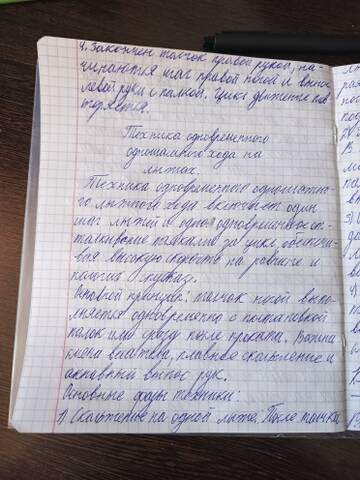 4. Закончен толчок правой рукой, на-
чинаются шаг правой ногой и вынос
левой руки с палкой. Цикл движения пов
торяется.
Техника одновременного
одношажного хода на
лыжах.
Техника одновременного одношажно-
го лыжного хода включает один
шаг лыжей и одно одновременное от-
талкивание палками за цикл, обеспечи-
вая высокую скорость на равнине и
пологих
Основной принцип: толчок ногой выпо-
лняется одновременно с постановкой
палок или сразу после проката. Важны
смена скольжение и
активный вынос рук.
Основные фазы техники:
1) Скольжение на одной лыже. После толчка